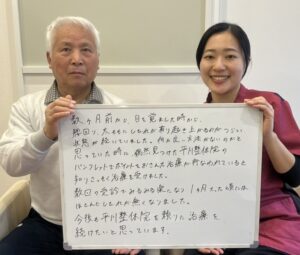 数ヶ月前から、目を覚ました時から、
腰回り、太ももにしびれが有り起き上がるのがつらい
状態が続いていました。何か良い方法がないのかと
思っていた時に、偶然見つけた平川整体院の
パンフレットでポイントをおさえた治療が行なわれていると
知り、さっそく治療を受けました。
数回の受診でみるみる楽になり1ヶ月たった頃には
ほとんどしびれが無くなりました。
今後も平川整体院を頼りに治療を
続けたいと思っています。